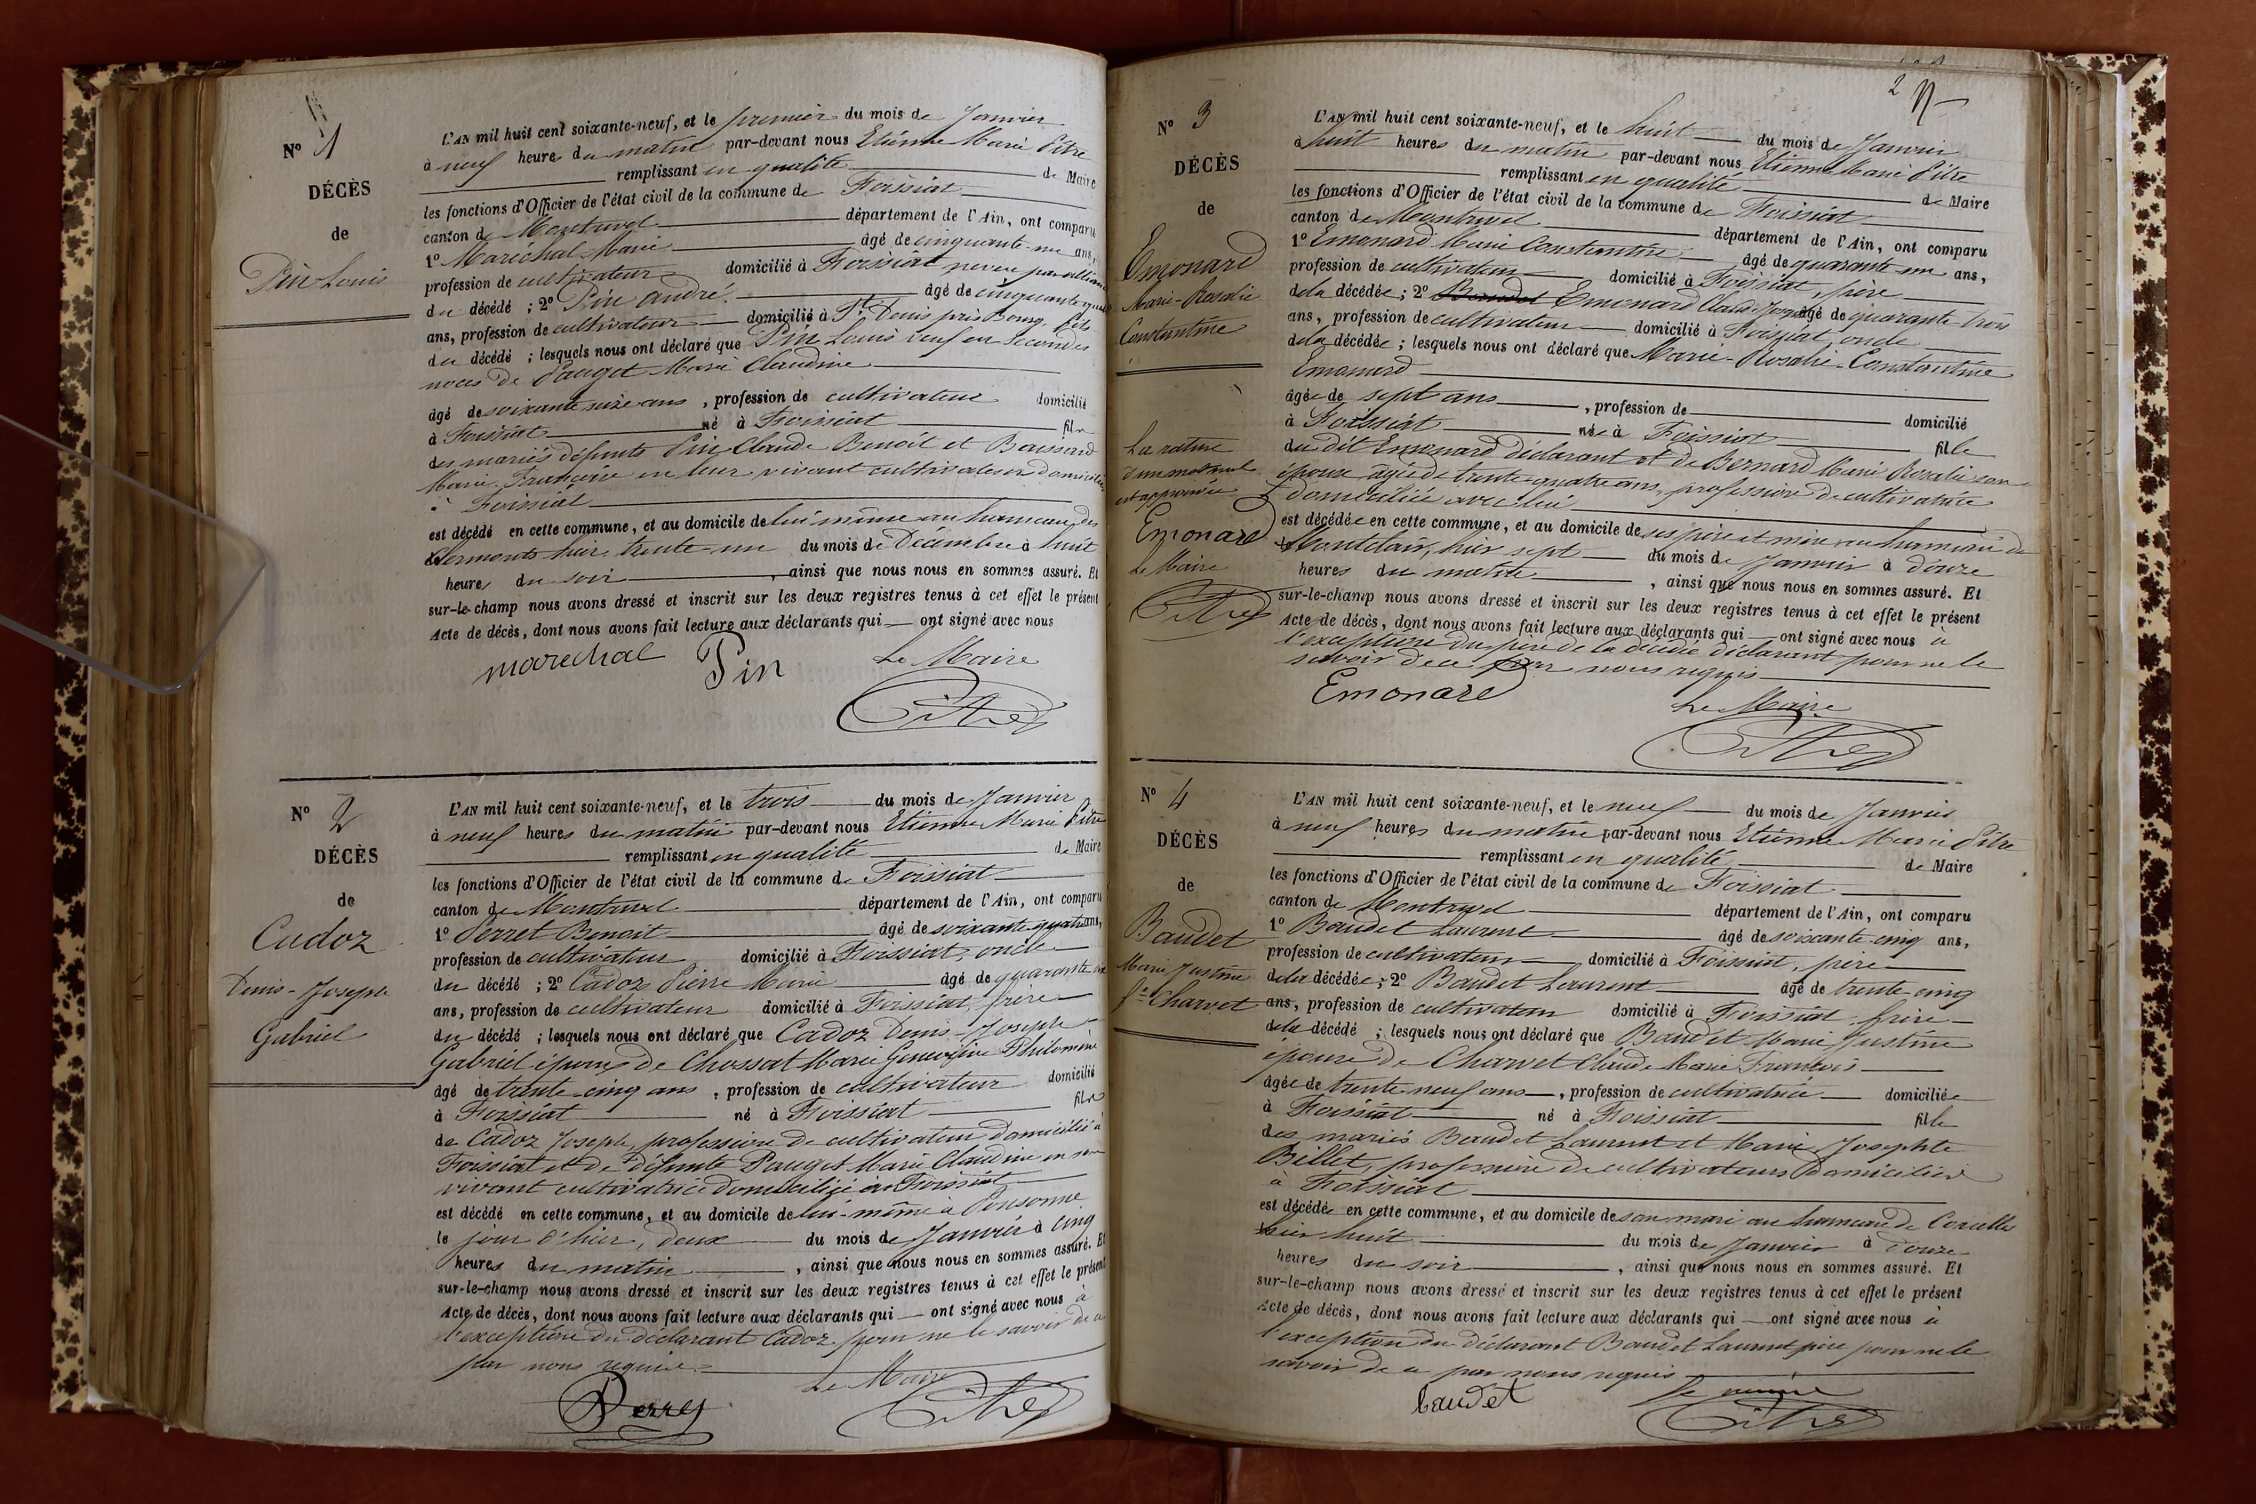 N° 1
DÉCÈS
de
Pin Louis
L'AN mil huit cent soixante-neuf, et le premier du mois de Janvier
à neuf heures du matin par-devant nous Etienne Marie Pitre
remplissant en qualité de Maire
les fonctions d'Officier de l'état civil de la commune de Foissiat
canton de Montrevel département de l'Ain, ont comparu
1° Maréchal Marie âgé de cinquante-un ans,
profession de cultivateur domicilié à Foissiat neveu par alliance
du décédé ; 2° Pin André âgé de cinquante quatre
ans, profession de cultivateur domicilié à St Denis près Bourg, fils
du décédé ; lesquels nous ont déclaré que Pin Louis veuf en secondes
noces de Pauget Marie Claudine
âgé de soixante seize ans, profession de cultivateur domicilié
à Foissiat né à Foissiat fils
des mariés défunts Pin Claude Benoît et Buissard
Marie Françoise en leur vivant cultivateurs domiciliés
à Foissiat
est décédé en cette commune, et au domicile de lui même au hameau des
Clermonts hier trente-un du mois de Décembre à huit
heures du soir, ainsi que nous nous en sommes assuré. Et
sur-le-champ nous avons dressé et inscrit sur les deux registres tenus à cet effet le présent
Acte de décès, dont nous avons fait lecture aux déclarants qui ont signé avec nous
marechal Pin Le Maire
Pitre
N° 2
DÉCÈS
de
Cadoz
Denis-Joseph
Gabriel
L'AN mil huit cent soixante-neuf, et le trois du mois de Janvier
à neuf heures du matin par-devant nous Etienne Marie Pitre
remplissant en qualité de Maire
les fonctions d'Officier de l'état civil de la commune de Foissiat
canton de Montrevel département de l'Ain, ont comparu
1° Perret Benoit âgé de soixante quatre ans,
profession de cultivateur domicilié à Foissiat, oncle
du décédé ; 2° Cadoz Pierre Marie âgé de quarante
ans, profession de cultivateur domicilié à Foissiat, frère
du décédé ; lesquels nous ont déclaré que Cadoz Denis-Joseph
Gabriel époux de Chossat Marie Geneviève Philomène
âgé de trente-cinq ans, profession de cultivateur domicilié
à Foissiat né à Foissiat fils
de Cadoz Joseph, profession de cultivateur domicilié à
Foissiat et de défunte Pauget Marie Claudine en son
vivant cultivatrice domiciliée à Foissiat
est décédé en cette commune, et au domicile de lui-même à
le jour d'hier, deux du mois de Janvier à cinq
heures du matin, ainsi que nous nous en sommes assuré. Et
sur-le-champ nous avons dressé et inscrit sur les deux registres tenus à cet effet le présent
Acte de décès, dont nous avons fait lecture aux déclarants qui ont signé avec nous à
l'exception du déclarant Cadoz pour ne le savoir de ce
par nous requis
Le Maire
Perret Pitre
2
N° 3
DÉCÈS
de
Emonard
Marie-Rosalie
Constantine
La rature
d'un mot nul
est approuvée
Emonard
Le Maire
Pitre
L'AN mil huit cent soixante-neuf, et le huit du mois de Janvier
à huit heures du matin par-devant nous Etienne Marie Pitre
remplissant en qualité de Maire
les fonctions d'Officier de l'état civil de la commune de Foissiat
canton de Montrevel département de l'Ain, ont comparu
1° Emonard Marie Constantin âgé de quarante un ans,
profession de cultivateur domicilié à Foissiat, père
de la décédée ; 2° Baudet Emonard Claude Joseph âgé de quarante-trois
ans, profession de cultivateur domicilié à Foissiat, oncle
de la décédée ; lesquels nous ont déclaré que Marie-Rosalie-Constantine
Emonard
âgée de sept ans, profession de domicilié
à Foissiat née à Foissiat fille
du dit Emonard déclarant et de Bernard Marie Rosalie son
épouse âgée de trente-quatre ans, profession de cultivatrice
domiciliée avec lui
est décédée en cette commune, et au domicile de ses père et mère au hameau de
Montclair, hier sept du mois de Janvier à douze
heures du matin, ainsi que nous nous en sommes assuré. Et
sur-le-champ nous avons dressé et inscrit sur les deux registres tenus à cet effet le présent
Acte de décès, dont nous avons fait lecture aux déclarants qui ont signé avec nous à
l'exception du père de la décédée déclarant pour ne le
savoir de ce par nous requis
Emonard Le Maire
Pitre
N° 4
DÉCÈS
de
Baudet
Marie Justine
fe Charvet
L'AN mil huit cent soixante-neuf, et le neuf du mois de Janvier
à neuf heures du matin par-devant nous Etienne Marie Pitre
remplissant en qualité de Maire
les fonctions d'Officier de l'état civil de la commune de Foissiat
canton de Montrevel département de l'Ain, ont comparu
1° Baudet Laurent âgé de soixante-cinq ans,
profession de cultivateur domicilié à Foissiat, père
de la décédée ; 2° Baudet Laurent âgé de trente-cinq
ans, profession de cultivateur domicilié à Foissiat frère
de la décédé ; lesquels nous ont déclaré que Baudet Marie Justine
épouse de Charvet Claude Marie François
âgée de trente neuf ans, profession de cultivatrice domiciliée
à Foissiat né à Foissiat fille
des mariés Baudet Laurent et Marie Josephte
Billet, profession de cultivateurs domiciliés
à Foissiat
est décédée en cette commune, et au domicile de son mari au hameau de Corcelle
hier huit du mois de Janvier à douze
heures du soir, ainsi que nous nous en sommes assuré. Et
sur-le-champ nous avons dressé et inscrit sur les deux registres tenus à cet effet le présent
Acte de décès, dont nous avons fait lecture aux déclarants qui ont signé avec nous à
l'exception du déclarant Baudet Laurent père pour ne le
savoir de ce par nous requis
baudet le maire
Pitre